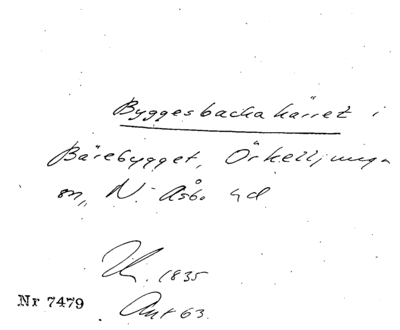 Byggesbackakärret i
Bärebygget, Örkelljunga
sn, N. Åsbo hd
1835
Nr 7479
Akt 63.